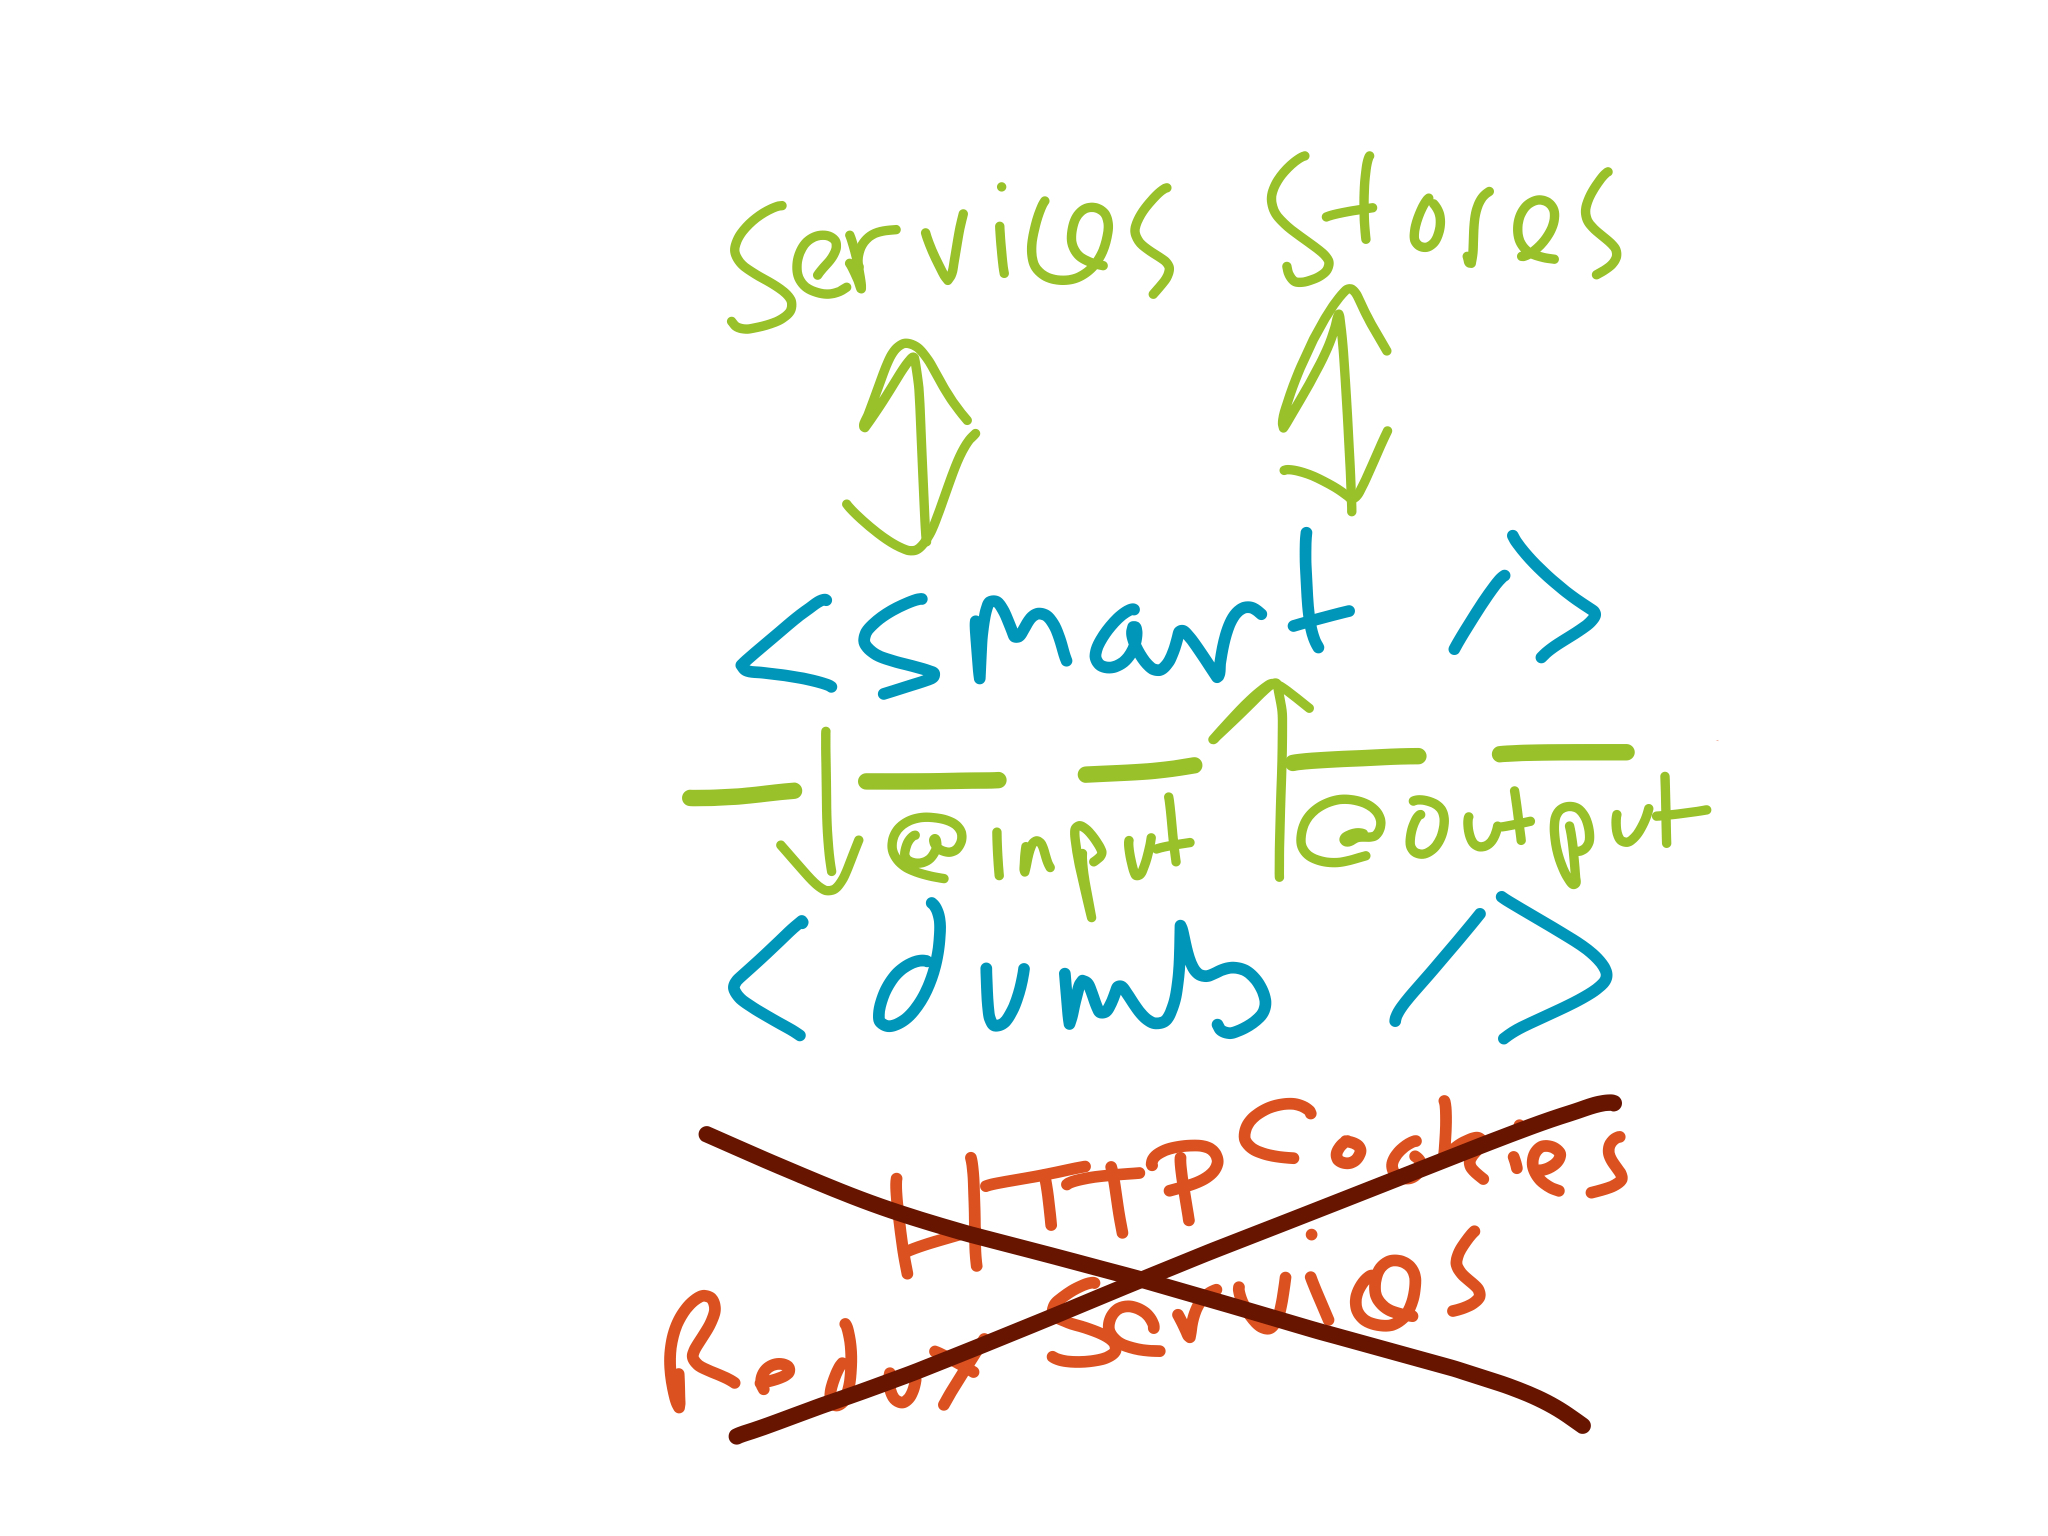 Services Stores
<smart />
@input @output
<dumb />
HTTP Cookies
Redux Services